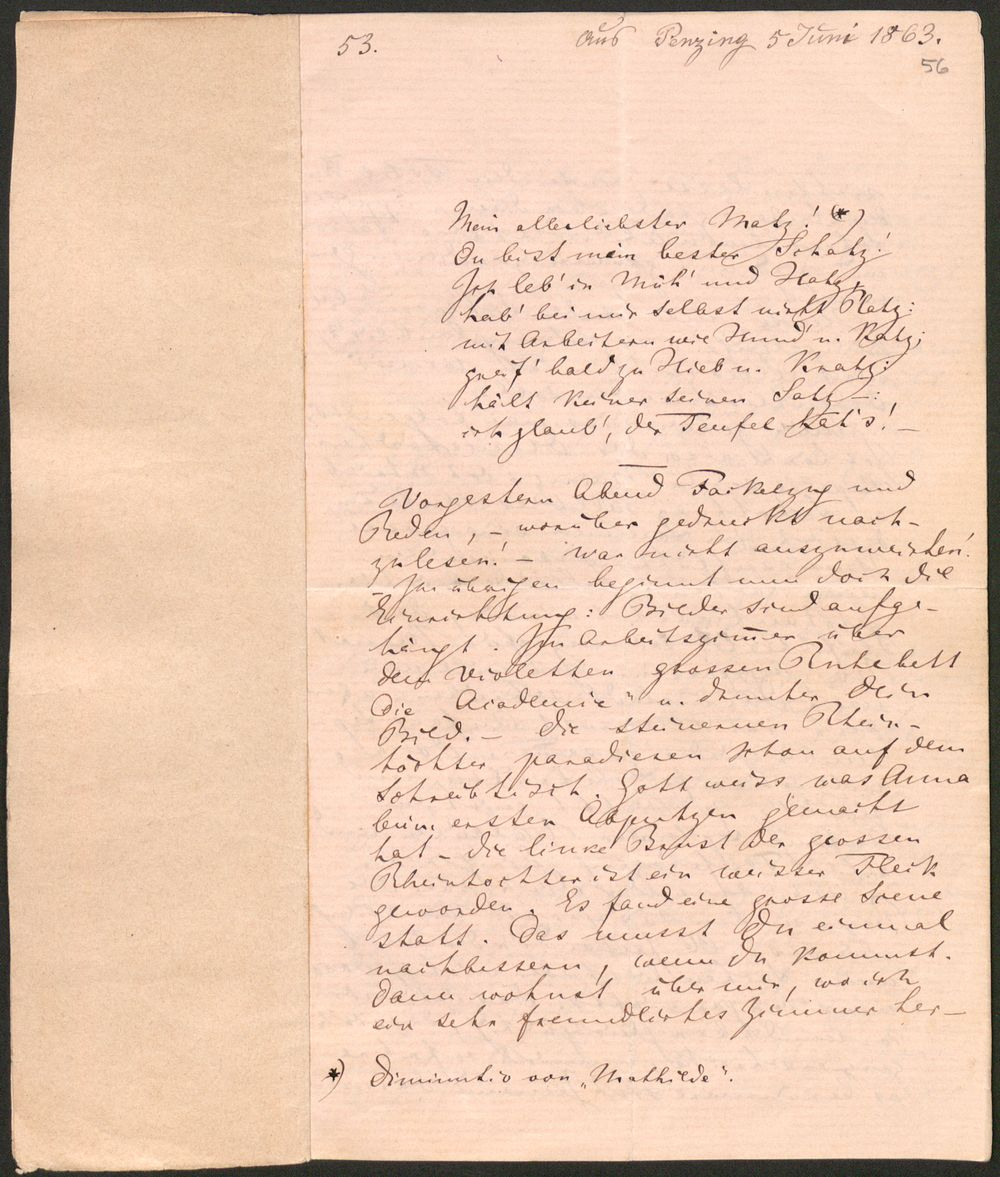 53.
Aus Penzing 5 Juni 1863.
56
Mein allerliebster Matz! (*)
Du bist mein bester Schatz!
Ich leb' in Müh' und Hatz,
hab' bei mir selbst nicht Platz:
mit Arbeitern wie Hund u. Katz;
greif' bald zu Hieb u. Kratz:
hält keiner seinen Satz –:
ich glaub', der Teufel hat's! –
Vorgestern Abend Fackelzug und
Reden, – worüber gedruckt nach-
zulesen! – war nicht auszuweichen!
– Im übrigen beginnt nun doch die
Einrichtung: Bilder sind aufge-
hängt. Im Arbeitszimer über
dem violetten grossen Ruhebett
die Academie" u. darunter dein
Bild. – Die steinernen Rhein-
töchter paradieren schon auf dem
Schreibtisch. Gott weiss was Anna
beim ersten Abputzen gemacht
hat – die linke Brust der grossen
Rheintochter ist ein weisser Fleck
geworden. Es fand eine grosse Scene
statt. Das musst Du einmal
nachbessern, wenn du kommst.
Dann wohnst über mir, wo ich
ein sehr freundliches Zimmer her-
*) Diminutiv von „Mathilde".